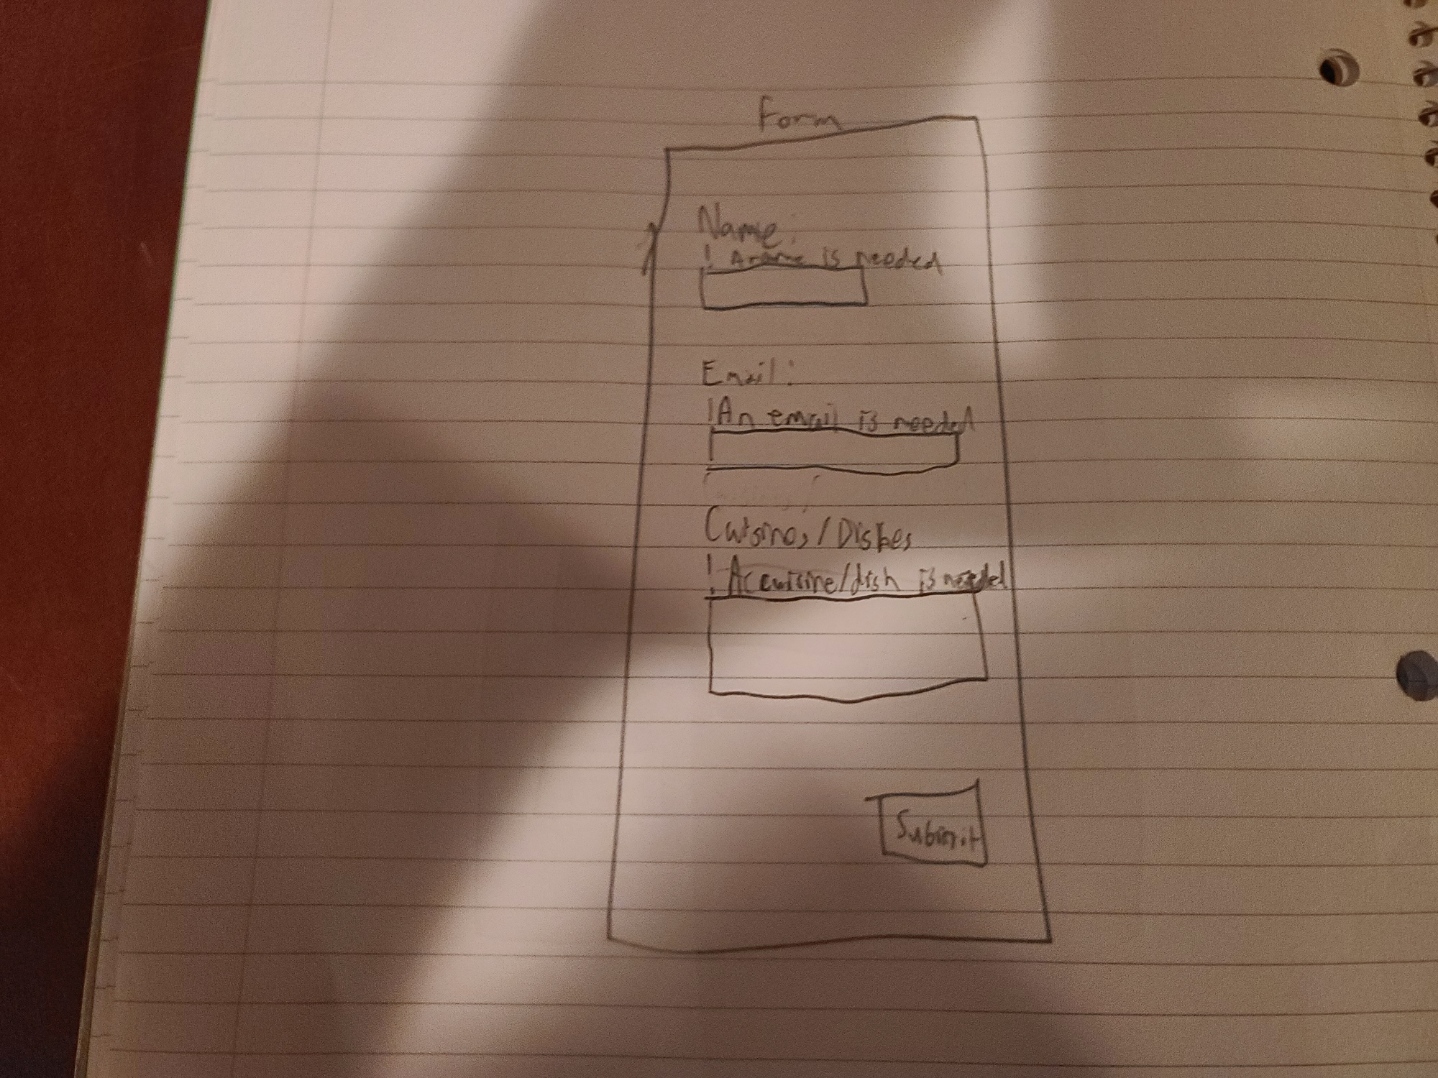 Form
Name:
! A name is needed
Email:
! An email is needed
Cuisines/Dishes
! A cuisine/dish is needed
Submit